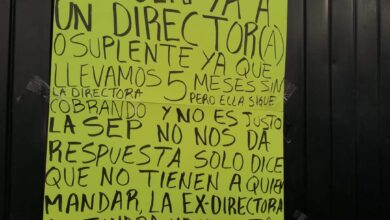 YA A
UN DIRECTOR(A)
O SUPLENTE YA QUE
LLEVAMOS 5 MESES SIN
LA DIRECTORA PERO ELLA SIGUE
COBRANDO Y NO ES JUSTO
LA SEP NO NOS DÁ
RESPUESTA SOLO DICE
QUE NO TIENEN A QUIEN
MANDAR, LA EX-DIRECTORA